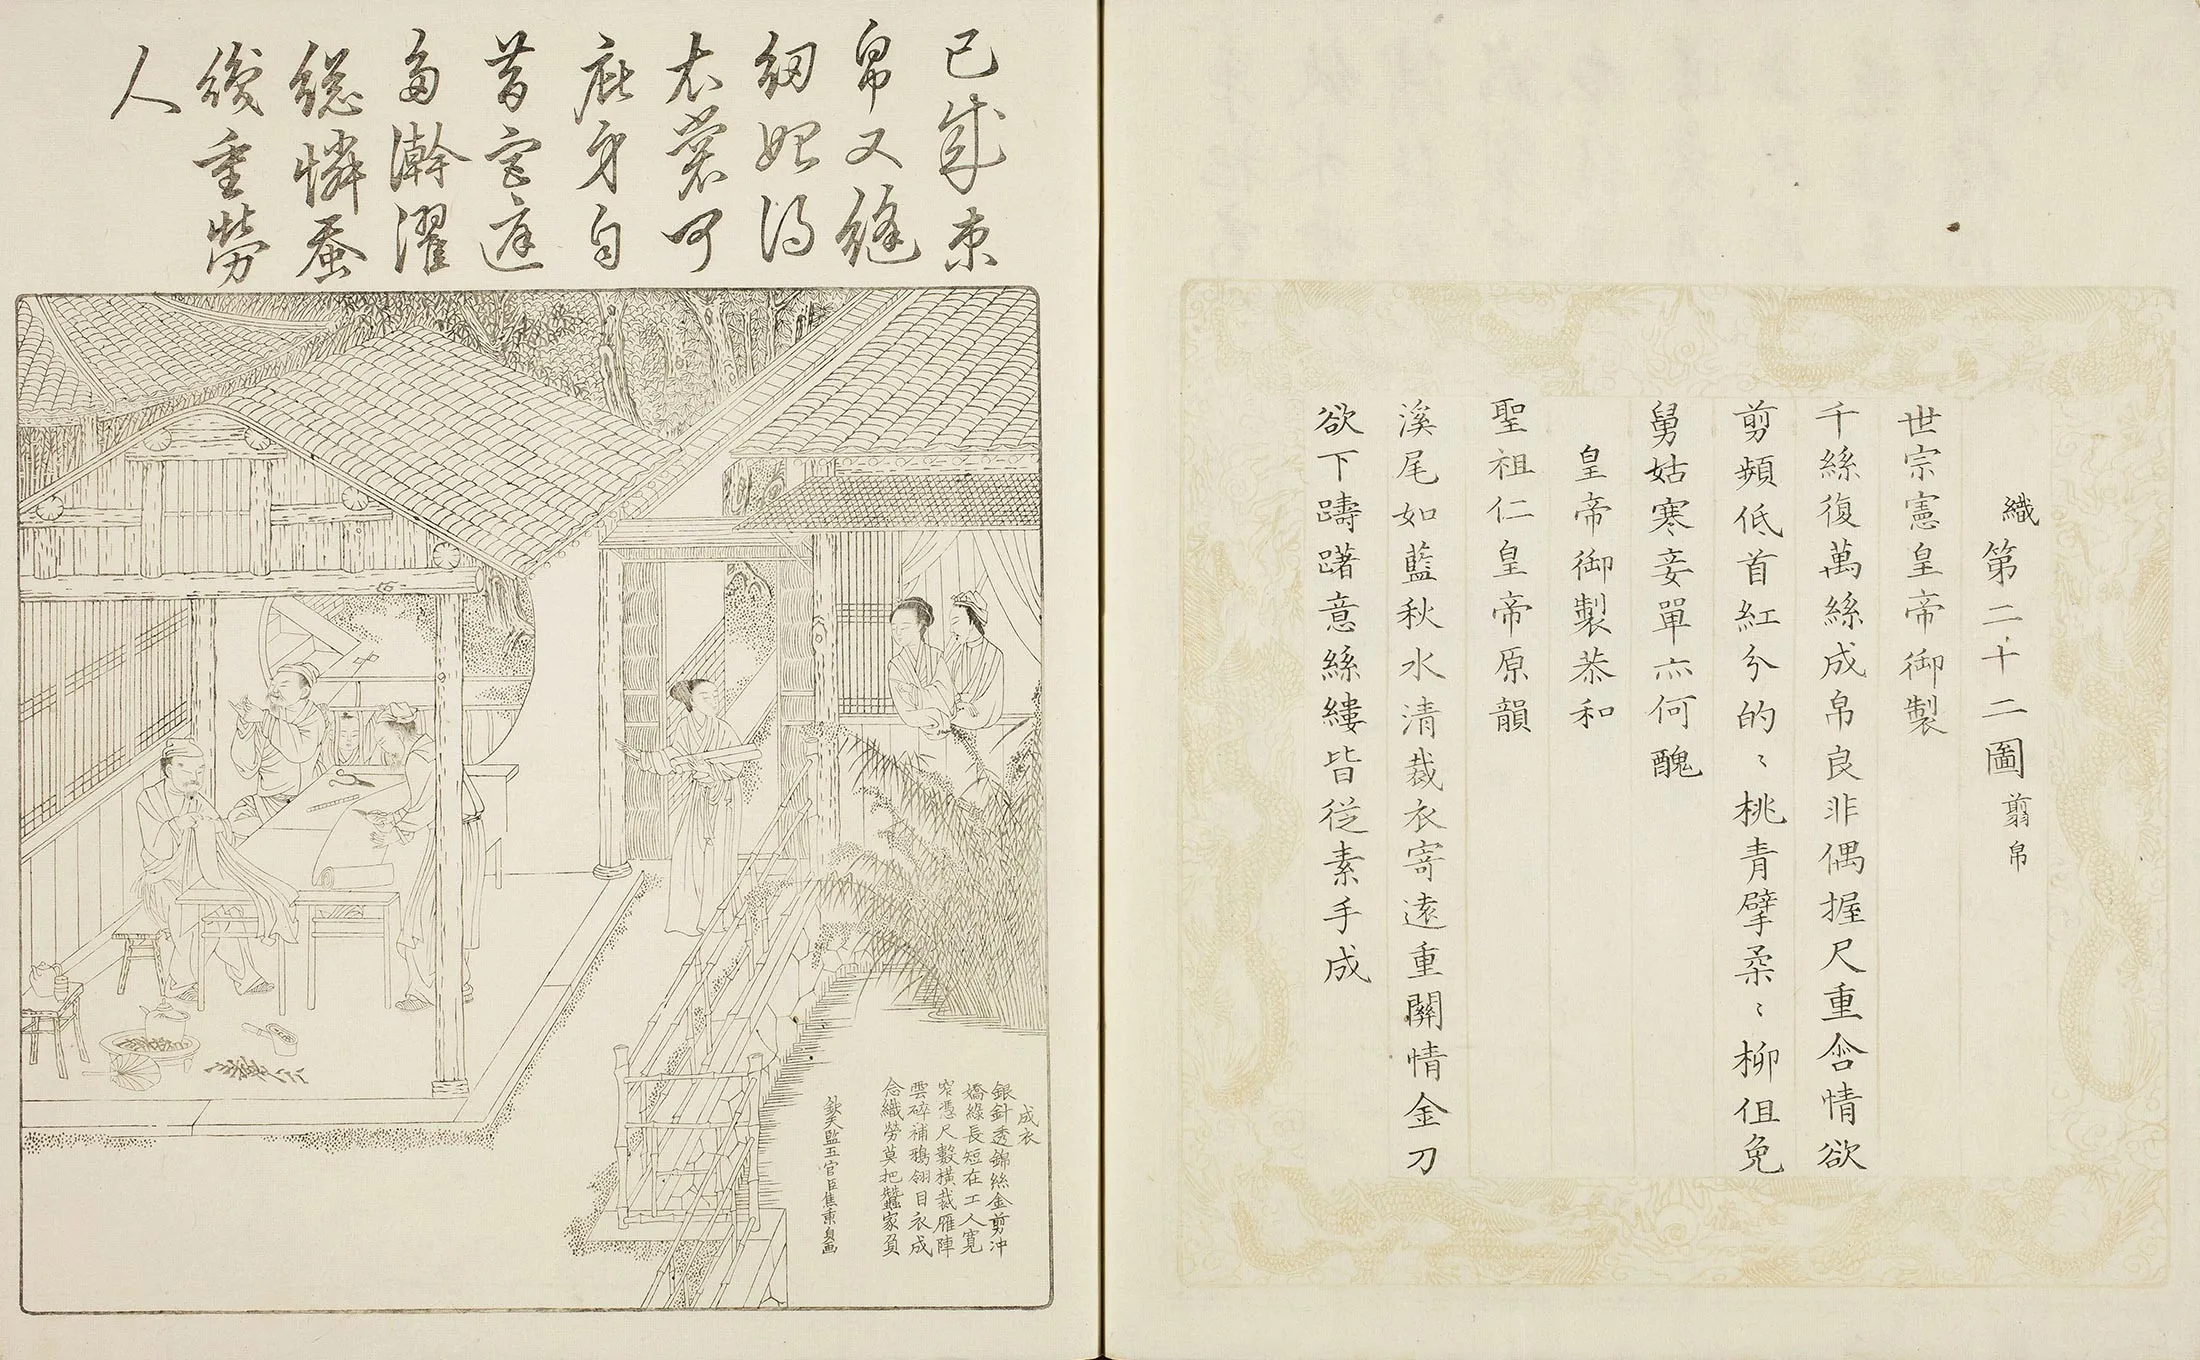 織第二十二圖 翦帛
世宗憲皇帝御製
千絲復萬絲成帛良非偶握尺重含情欲
剪頻低首紅分的〻桃青擘柔〻柳但免
舅姑寒妾單亦何醜
皇帝御製恭和
聖祖仁皇帝原韻
溪尾如藍秋水清裁衣寄遠重關情金刀
欲下躊躇意絲縷皆從素手成
已成束
帛又縫
紉始得
衣裳可
庇身自
昔宮庭
多澣濯
總憐蚕
織重勞
人
成衣
銀針透錦絲金剪沖
嬌綠長短在工人寬
窄憑尺數橫裁雁陣
雲碎補鴉翎目衣成
念織勞莫把蠶家負
欽天監五官臣焦秉貞画